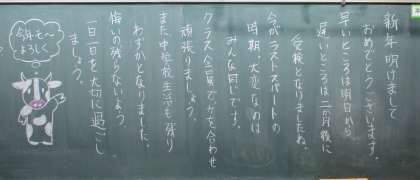 新年明けまして
おめでとうございます。
早いところは明日から
遅いところは二か月後に
受検となりましたね。
今がラストスパートの
時期。大変なのは
みんな同じです。
クラス全員で力を合わせ
頑張りましょう。
また中学校生活も残り
わずかとなりました。
悔いの残らないよう
一日一日を大切に過ごし
ましょう。
今年モ〜
よろしく